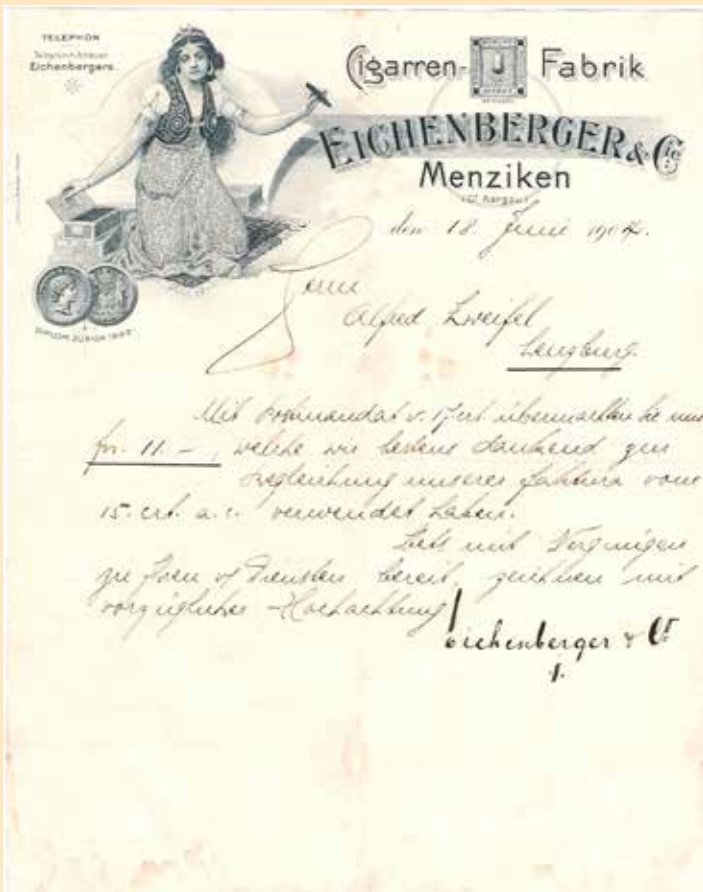 TELEPHON
Telegramm-Adresse:
Eichenbergers.
Cigarren-Fabrik
EICHENBERGER & Cie
Menziken
(Ct. Aargau)
den 18. Juni 1904.
Herrn
Alfred Zweifel
Lenzburg.
DIPLOM ZÜRICH 1883
Mit Postmandat v. 17. crt. übermachten Sie uns
frs. 11.–, welche wir bestens dankend zur
Begleichung unserer Faktura vom
15. crt. a. c. verwendet haben.
Stets mit Vergnügen
zu Ihren Diensten bereit, zeichnen mit
vorzüglicher Hochachtung!
Eichenberger & Cie